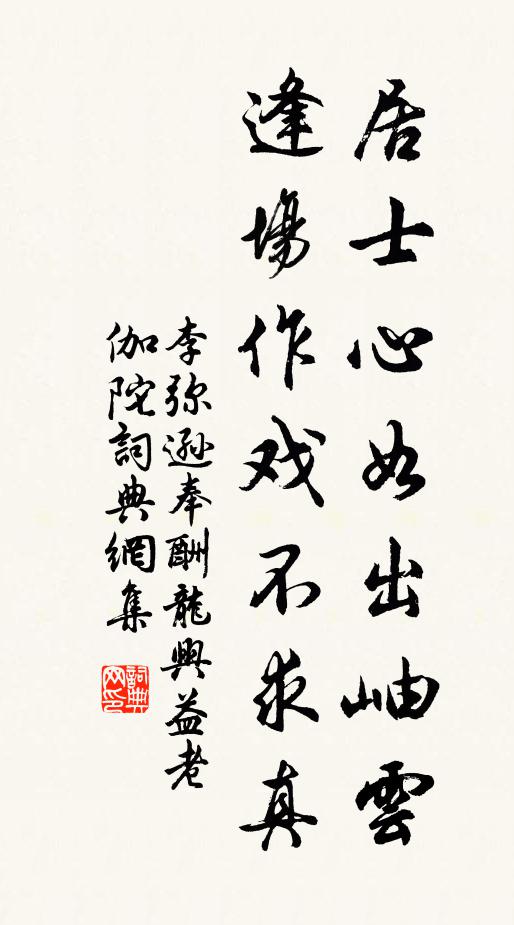 居士心如出岫雲
逢場作戏不求真
李弥遜奉酬龍興益老
伽陀詞典網集
詞典網印